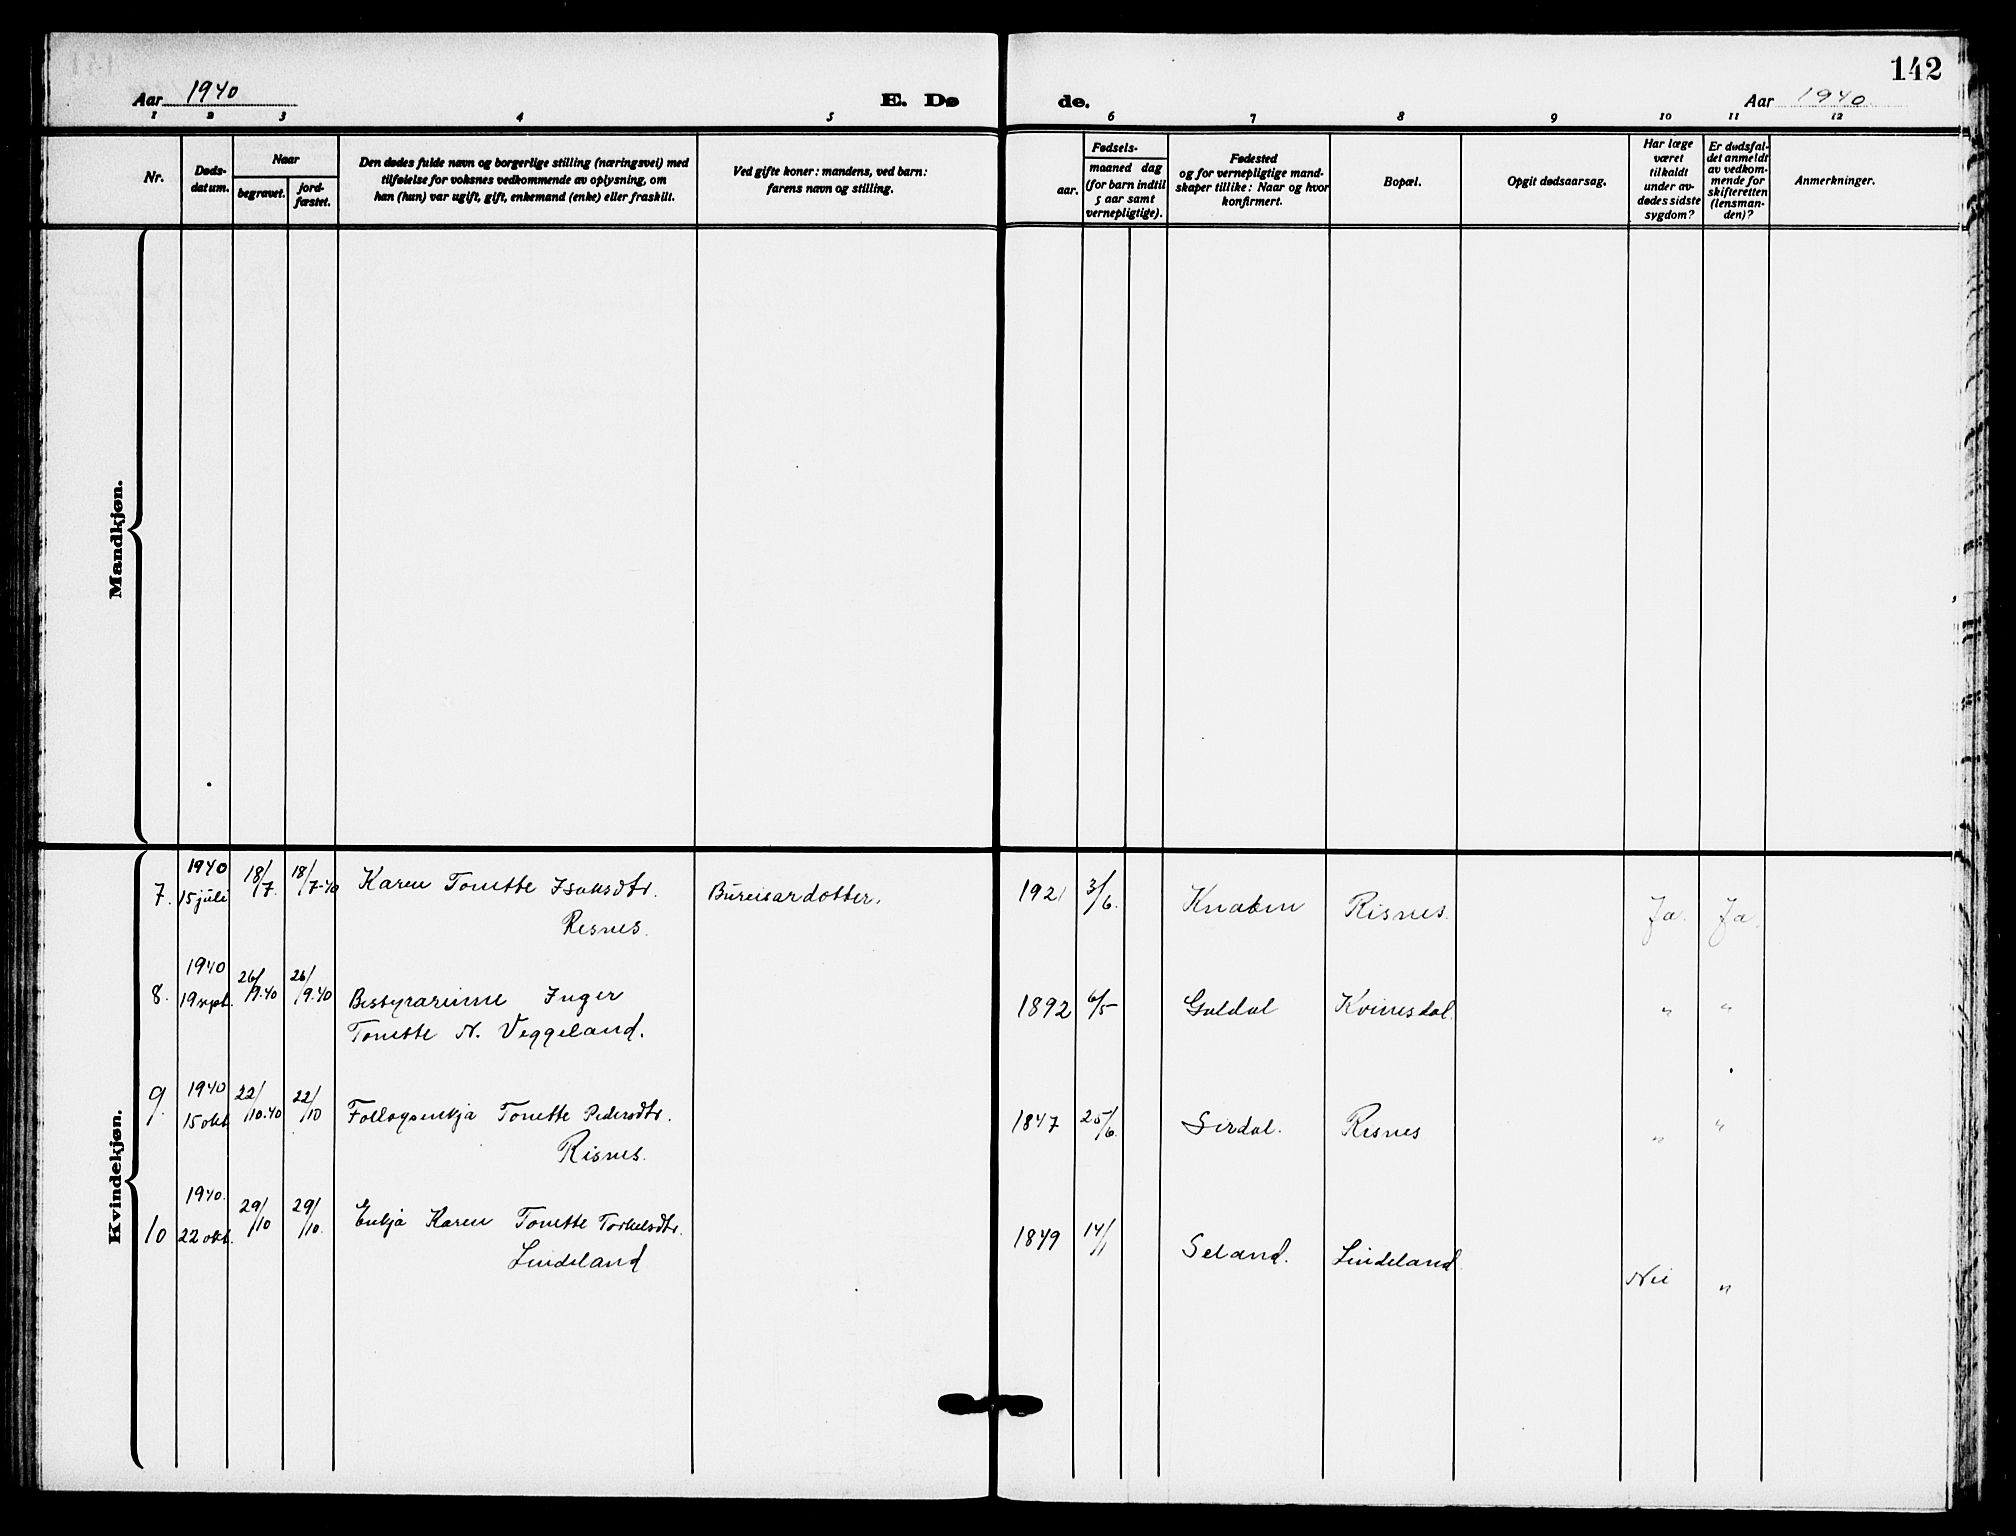 142
Aar 1940
E. Dø
de.
Aar 1940
1 2 3 4 5 6 7 8 9 10 11 12
Nr.
Døds-
datum.
Naar
begravet.
jord-
fæstet.
Den dødes fulde navn og borgerlige stilling (næringsvei) med
tilføielse for voksnes vedkommende av oplysning, om
han (hun) var ugift, gift, enkemand (enke) eller fraskilt.
Ved gifte koner: mandens, ved barn:
farens navn og stilling.
Fødsels-
aar.
maaned dag
(for barn indtil
5 aar samt
vernepligtige).
Fødested
og for vernepligtige mand-
skaper tillike: Naar og hvor
konfirmert.
Bopæl.
Opgit dødsaarsag.
Har læge
været
tilkaldt
under av-
dødes sidste
sygdom?
Er dødsfal-
det anmeldt
av vedkom-
mende for
skifteretten
(lensman-
den)?
Anmerkninger.
Mandkjøn.
Kvindekjøn.
1940
7. 15 juli 18/7. 18/7-40 Karen Tonette Isaksdtr. Bureisardotter. 1921 3/6. Knaben Risnes. Ja. Ja.
Risnes.
1940
8. 19 sept. 26/9.40 26/9.40 Bestyrarinne Inger 1892 6/5 Guldal Kvinesdal. " "
Tonette N. Veggeland.
1940
9. 15 okt 22/10.40 22/10 Follogsenkja Tonette Pedersdtr. 1847 25/6. Sirdal. Risnes " "
Risnes.
1940.
10 22 okt. 29/10 29/10. Enkja Karen Tonette Torkelsdtr. 1849 14/1 Seland. Lindeland. Nei "
Lindeland